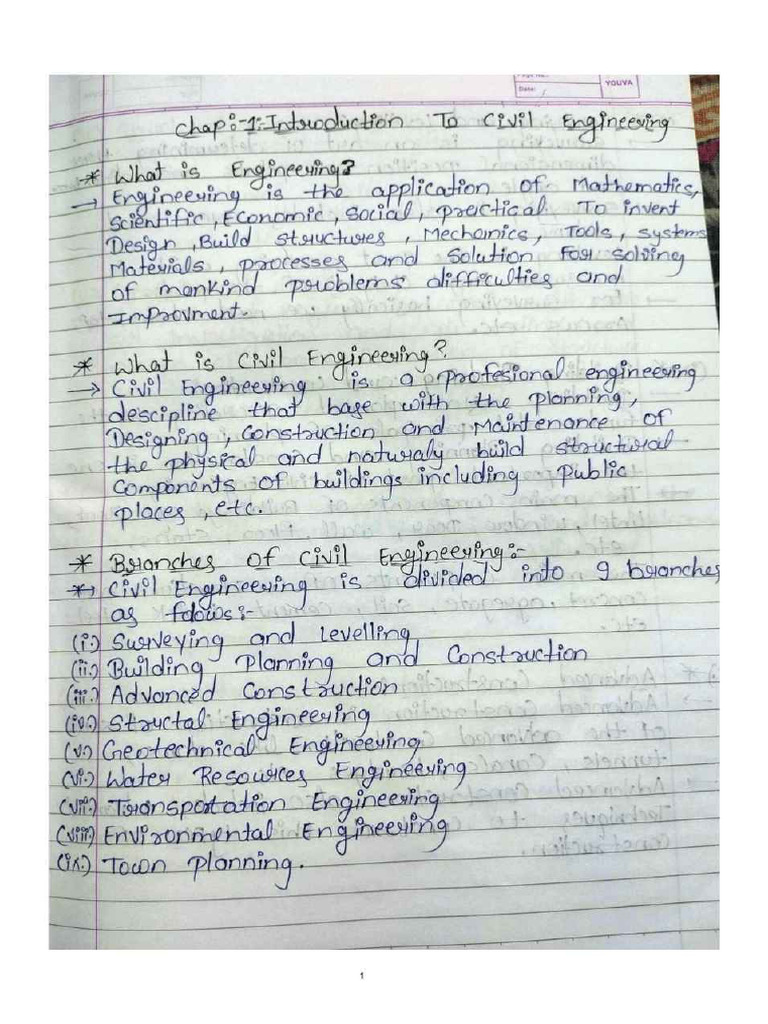 Date:
YOUVA
Chap:-1:-Introduction To Civil Engineering
* What is Engineering?
→ Engineering is the application of Mathematics,
Scientific, Economic, Social, practical To invent
Design, Build structures, Mechanics, Tools, systems
Materials, processes and solution For solving
of mankind problems difficulties and
Improvment.
* What is Civil Engineering?
→ Civil Engineering is a profesional engineering
descipline that base with the planning,
Designing, construction and Maintenance of
the physical and naturaly build structural
components of buildings including public
places, etc.
* Branches of Civil Engineering:-
*→ Civil Engineering is divided into 9 branches
as follows:-
(i.) Surveying and Levelling
(ii.) Building Planning and Construction
(iii.) Advanced Construction
(iv.) Structal Engineering
(v.) Geotechnical Engineering
(vi.) Water Resources Engineering
(vii.) Transportation Engineering
(viii.) Environmental Engineering
(ix.) Town planning.
1